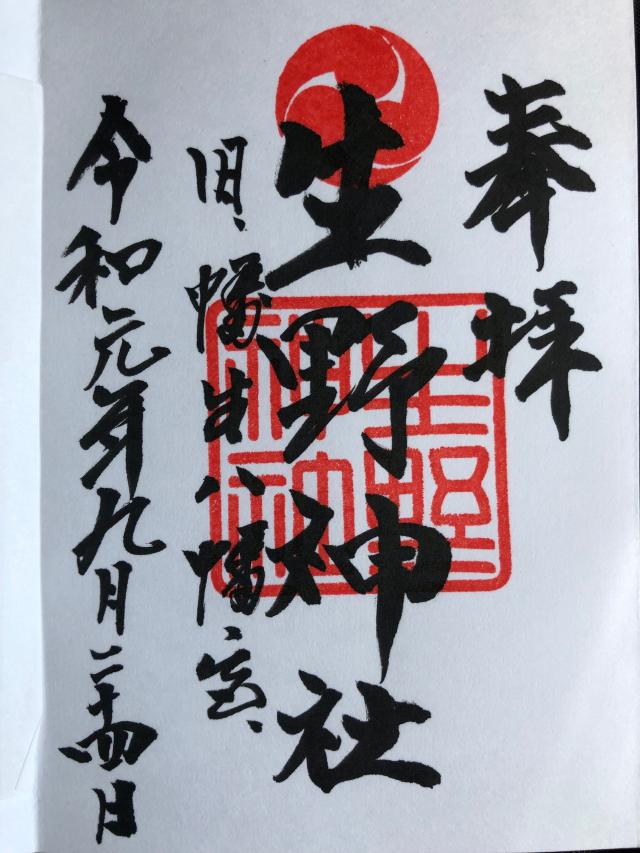 奉拝
生野神社
旧、幡生八幡宮、
令和元年九月二十四日
生野
神社